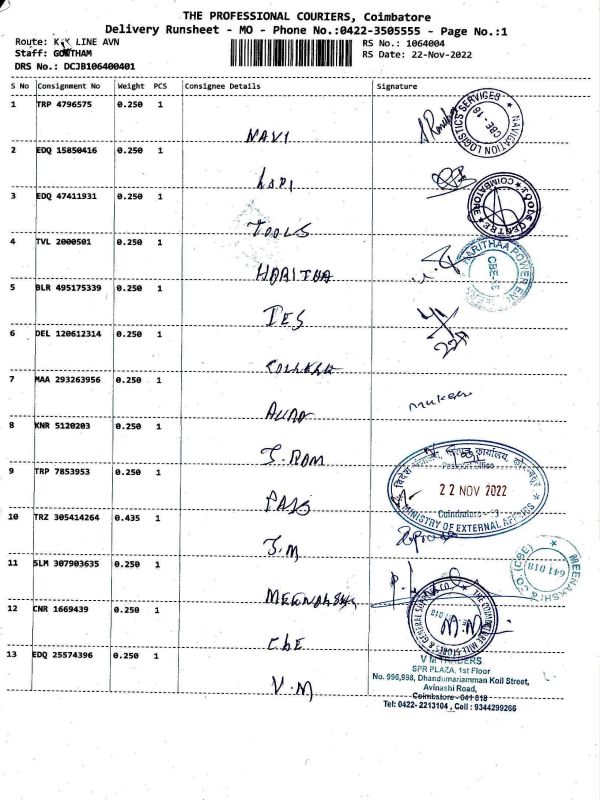 THE PROFESSIONAL COURIERS, Coimbatore
Delivery Runsheet - MO - Phone No.:0422-3505555 - Page No.:1
Route: K.K LINE AVN
RS No.: 1064004
Staff: GOWTHAM
RS Date: 22-Nov-2022
DRS No.: DCJB106400401
S No Consignment No Weight PCS Consignee Details Signature
1 TRP 4796575 0.250 1
NAVIGATION LOGISTICS SERVICES CBE - 18
NAVI
2 EDQ 15850416 0.250 1
3 EDQ 47411931 0.250 1
COIMBATORE
TOOLS
4 TVL 2000501 0.250 1
CBE-6
HARITHA
5 BLR 495175339 0.250 1
6 DEL 120612314 0.250 1
7 MAA 293263956 0.250 1
8 KNR 5120203 0.250 1
J.RAM
9 TRP 7853953 0.250 1
Passport Office
22 NOV 2022
Coimbatore
MINISTRY OF EXTERNAL AFFAIRS
PASS
10 TRZ 305414264 0.435 1
J.M
11 SLM 307903635 0.250 1
MEENAKSHI & CO (CBE) 641 018
MEENAKSHI
12 CNR 1669439 0.250 1
CBE
13 EDQ 25574396 0.250 1
V M TRADERS
SPR PLAZA, 1st Floor
No. 996,998, Dhandumariamman Koil Street,
Avinashi Road,
Coimbatore - 641 018
Tel: 0422- 2213104 , Cell : 9344299266
V.M